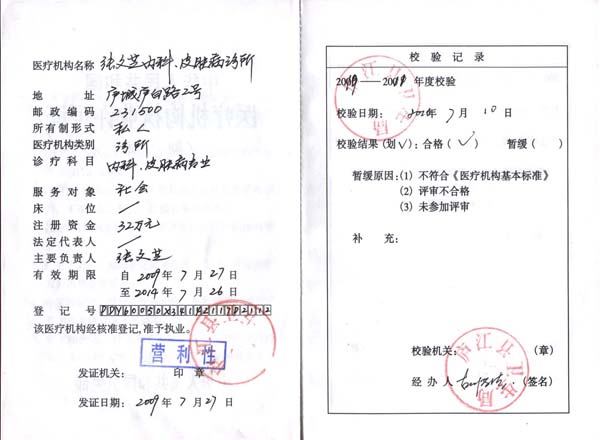 医疗机构名称 张文芝内科、皮肤病诊所
地 址 庐城庐白路2号
邮政编码 231500
所有制形式 私人
医疗机构类别 诊所
诊疗科目 内科、皮肤病专业
服务对象 社会
床 位 /
注册资金 32万元
法定代表人 /
主要负责人 张文芝
有效期限 自 2009年 7月 27日
至 2014年 7月 26日
登 记 号
该医疗机构经核准登记,准予执业。
营利性
发证机关: 印 章
发证日期: 2009年 7月 27日
校 验 记 录
年度校验
校验日期: 年 7月 10日
校验结果(划√):合格(√) 暂缓( )
暂缓原因:(1) 不符合《医疗机构基本标准》
(2) 评审不合格
(3) 未参加评审
补 充:
校验机关: (章)
庐江县卫生局
经 办 人 (签名)